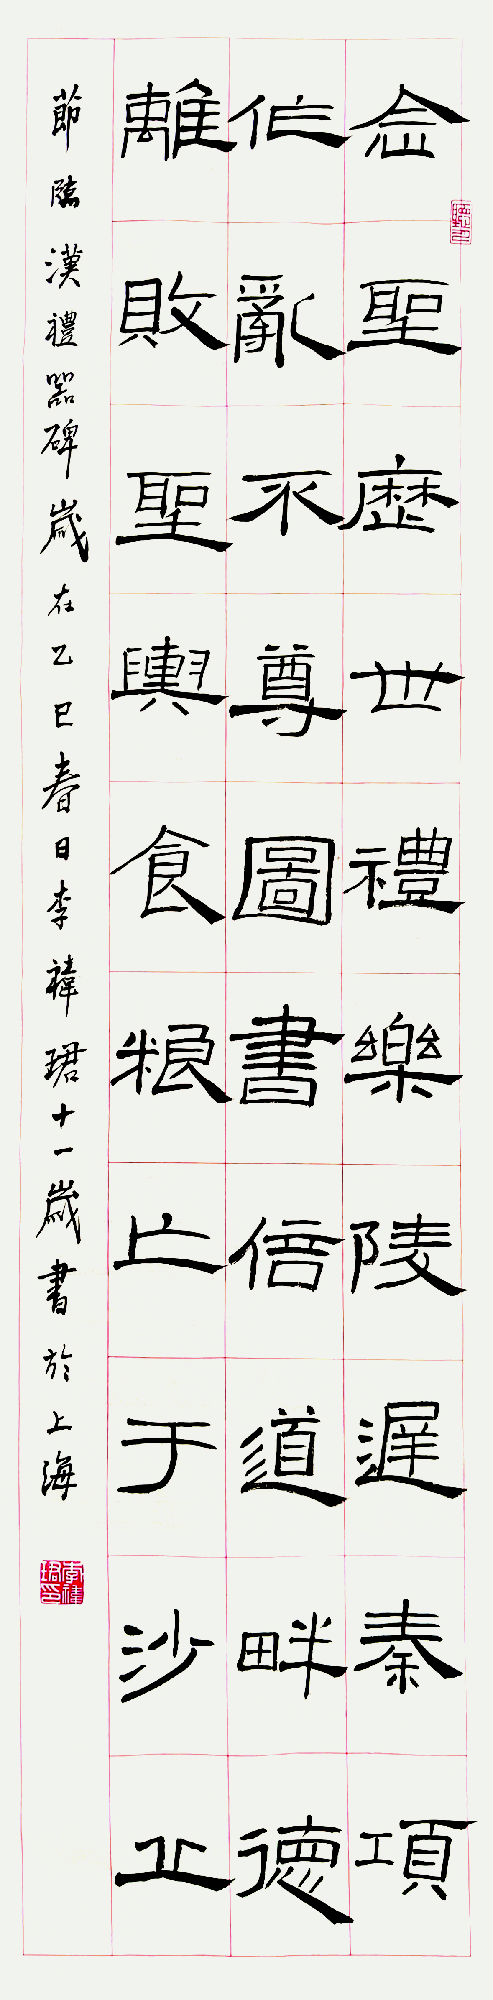 念聖歷世禮樂陵遲秦項
作亂不尊圖書倍道畔德
離敗聖輿食粮亡于沙丘
節臨漢禮器碑歲在乙巳春日李禕珺十一歲書於上海
李禕珺印